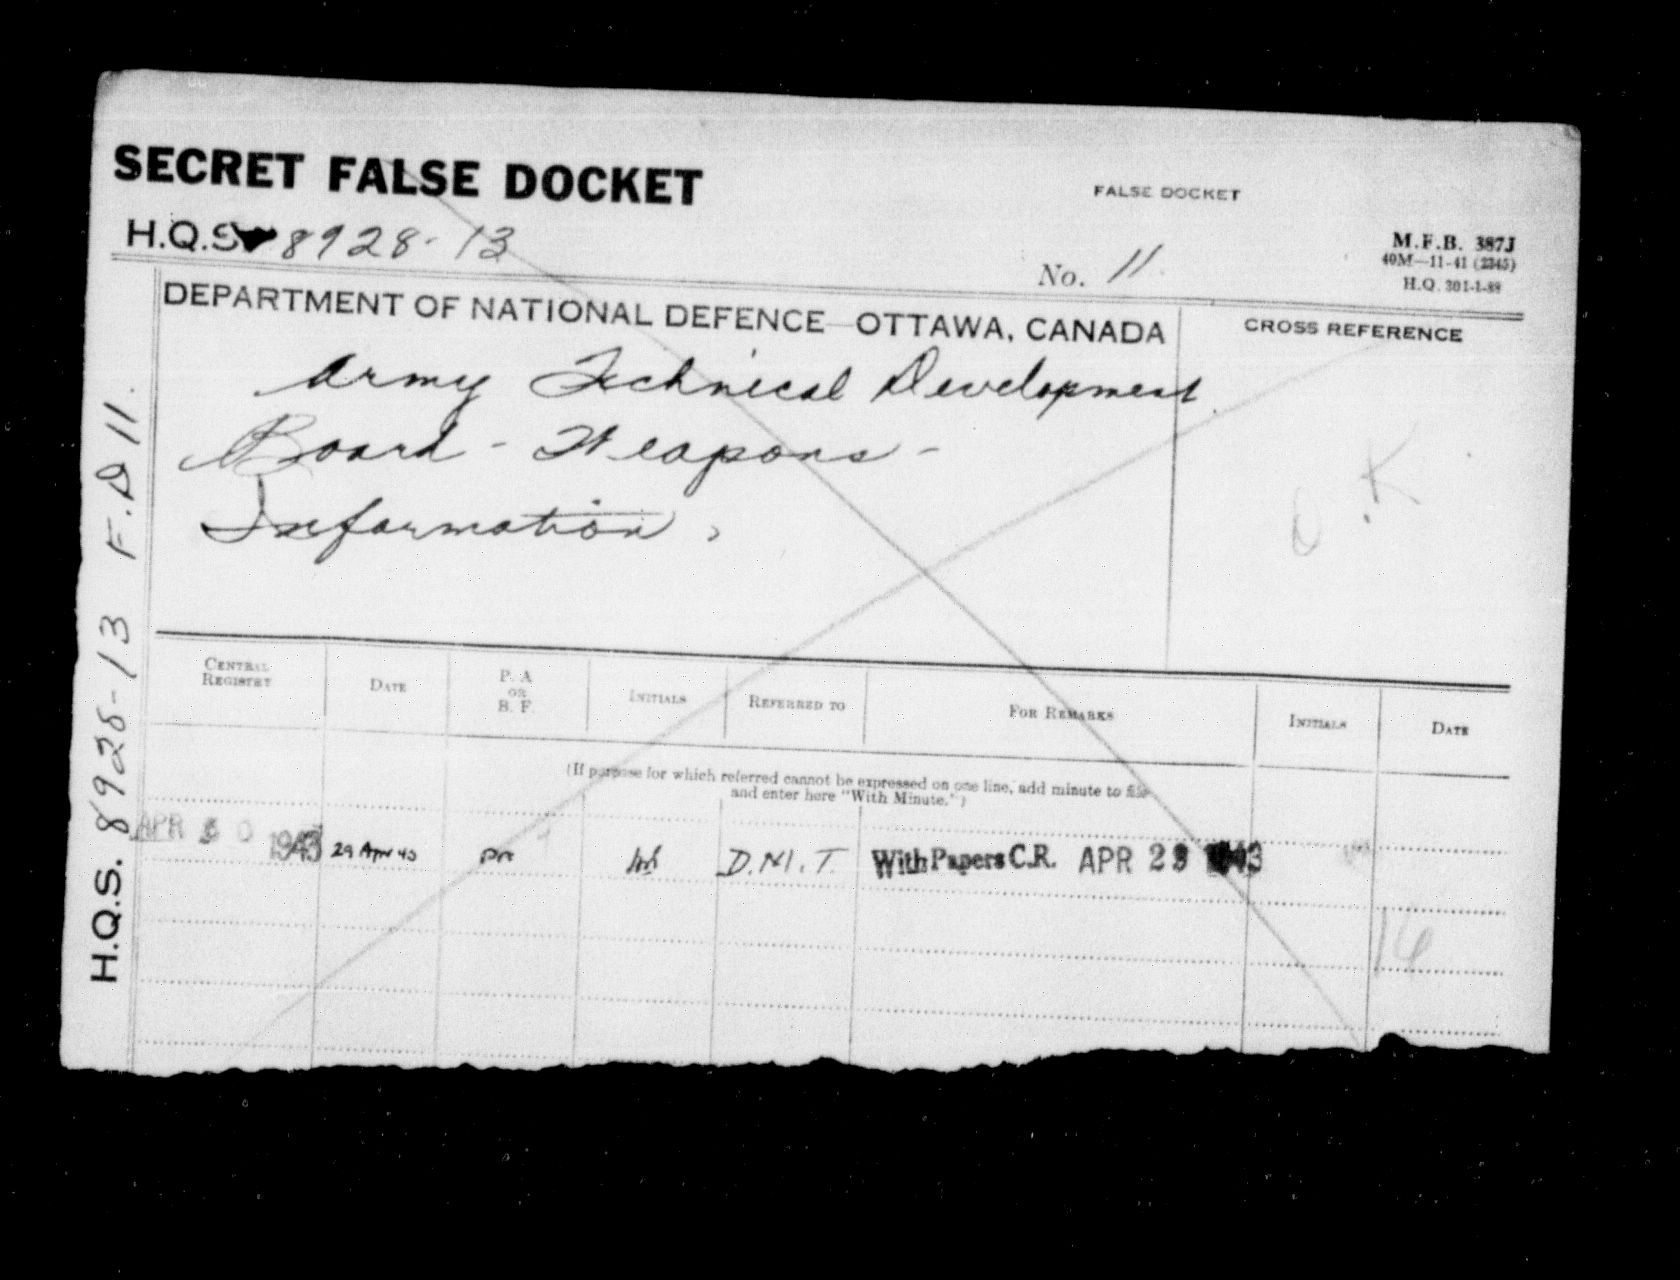 SECRET FALSE DOCKET
FALSE DOCKET
H.Q.S. 8928-13
No. 11
M.F.B. 387J
40M—11-41 (2345)
H.Q. 301-1-88
DEPARTMENT OF NATIONAL DEFENCE—OTTAWA, CANADA
CROSS REFERENCE
Army Technical Development
Board - Weapons -
Information.
O.K
H.Q.S. 8928-13 F.D 11.
CENTRAL REGISTRY
DATE
P. A. OR B. F.
INITIALS
REFERRED TO
FOR REMARKS
INITIALS
DATE
(If purpose for which referred cannot be expressed on one line, add minute to file
and enter here "With Minute.")
APR 30 1943 29 Apr 43 D.M.T. With Papers C.R. APR 29 1943
16